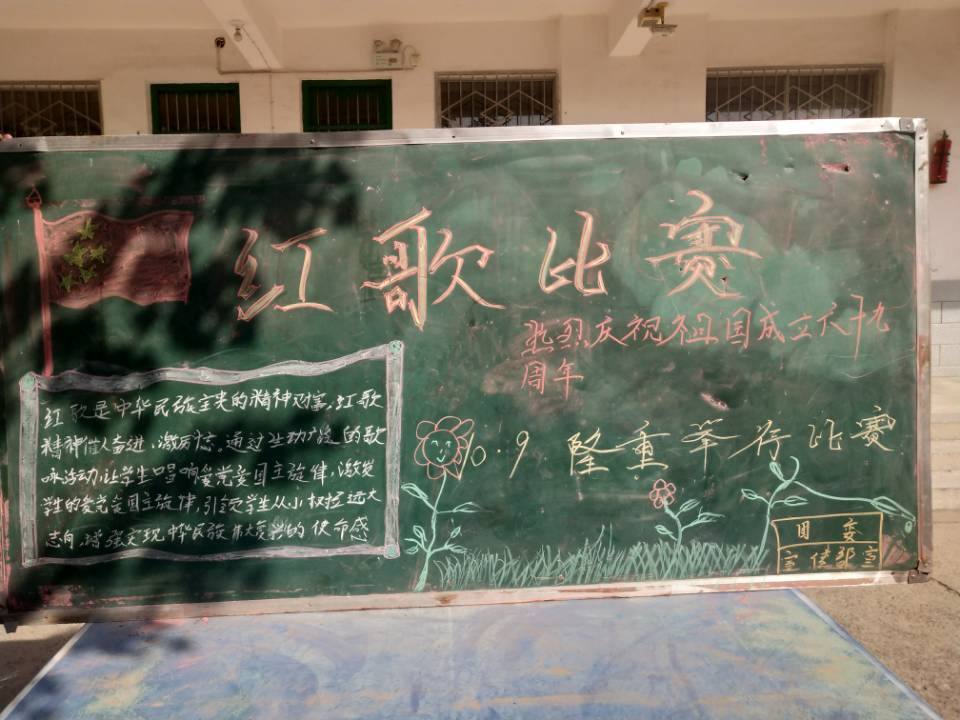 红歌比赛
热烈庆祝祖国成立六十九
周年
红歌是中华民族宝贵的精神财富,红歌
精神催人奋进、激历志。通过生动广泛的歌
咏活动,让学生唱响爱党爱国主旋律,激发
学生的爱党爱国主旋律,引领学生从小树立远大
志向,增强实现中华民族伟大复兴的使命感
10.9 隆重举行比赛
团委
宣传部宣